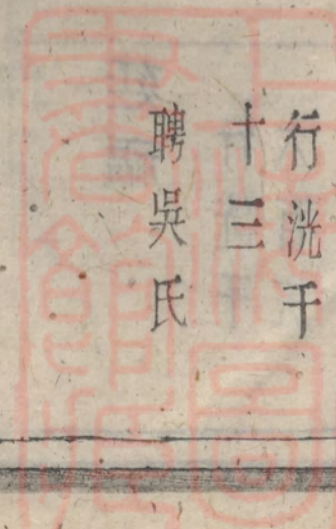 行洸千
十三
聘吳氏